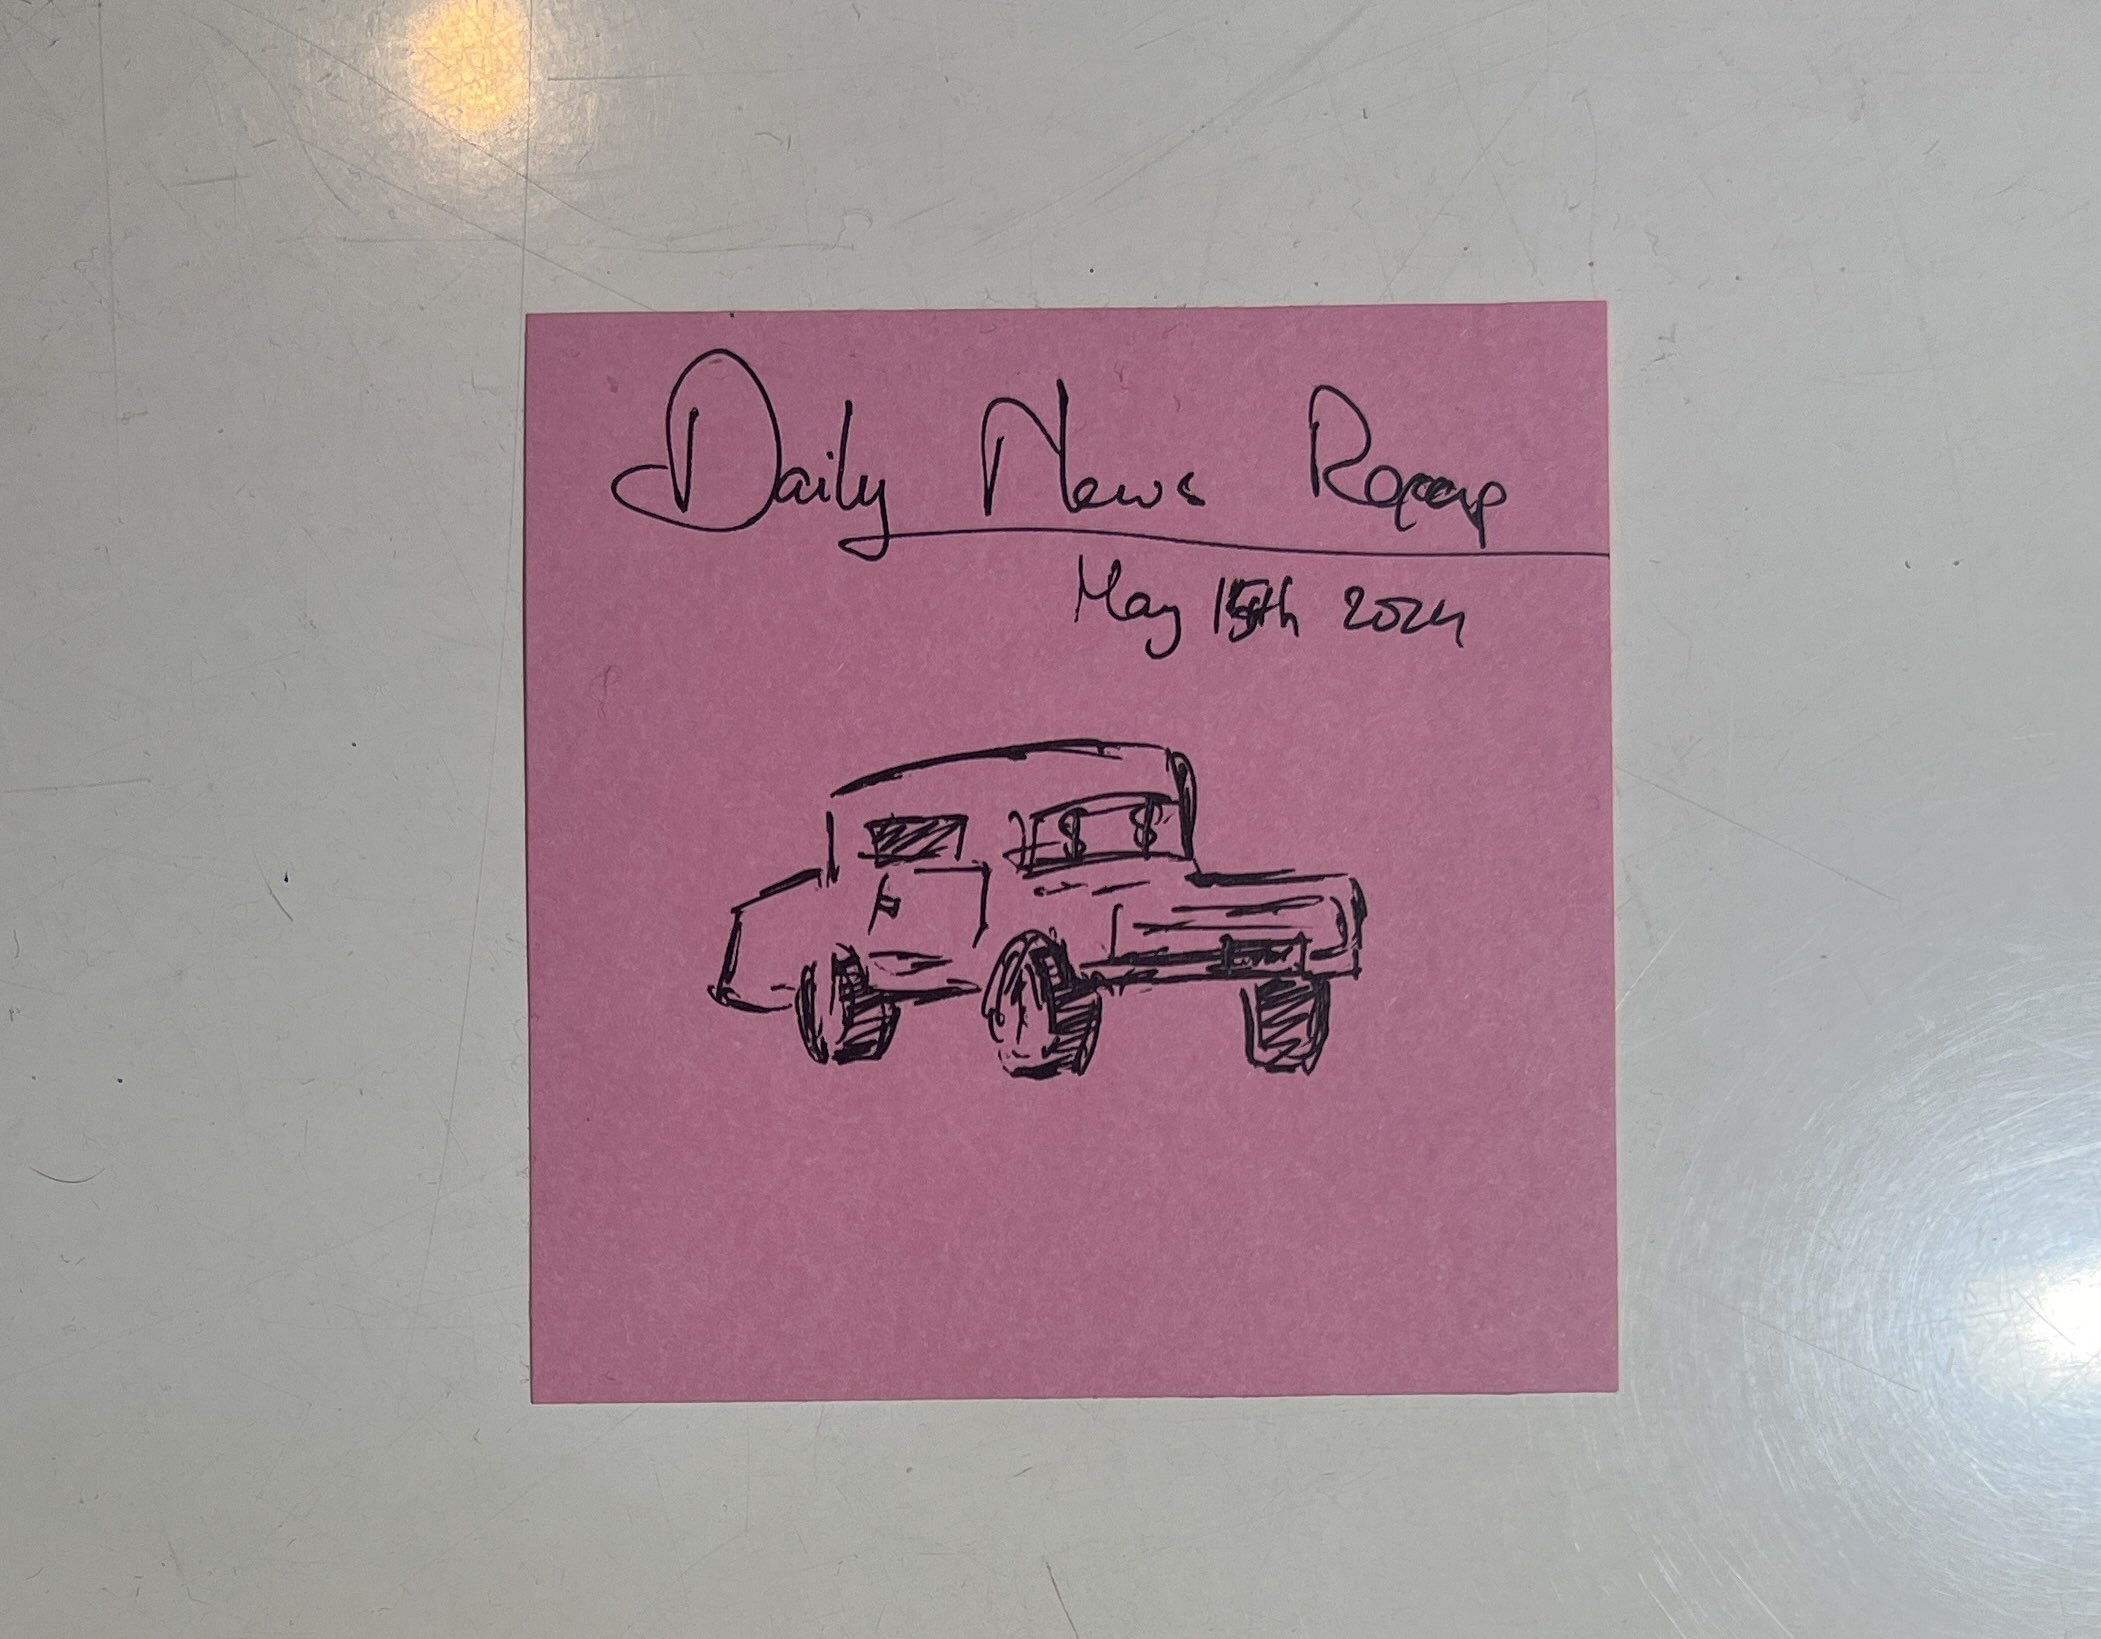 Daily News Recap
May 15th 2024